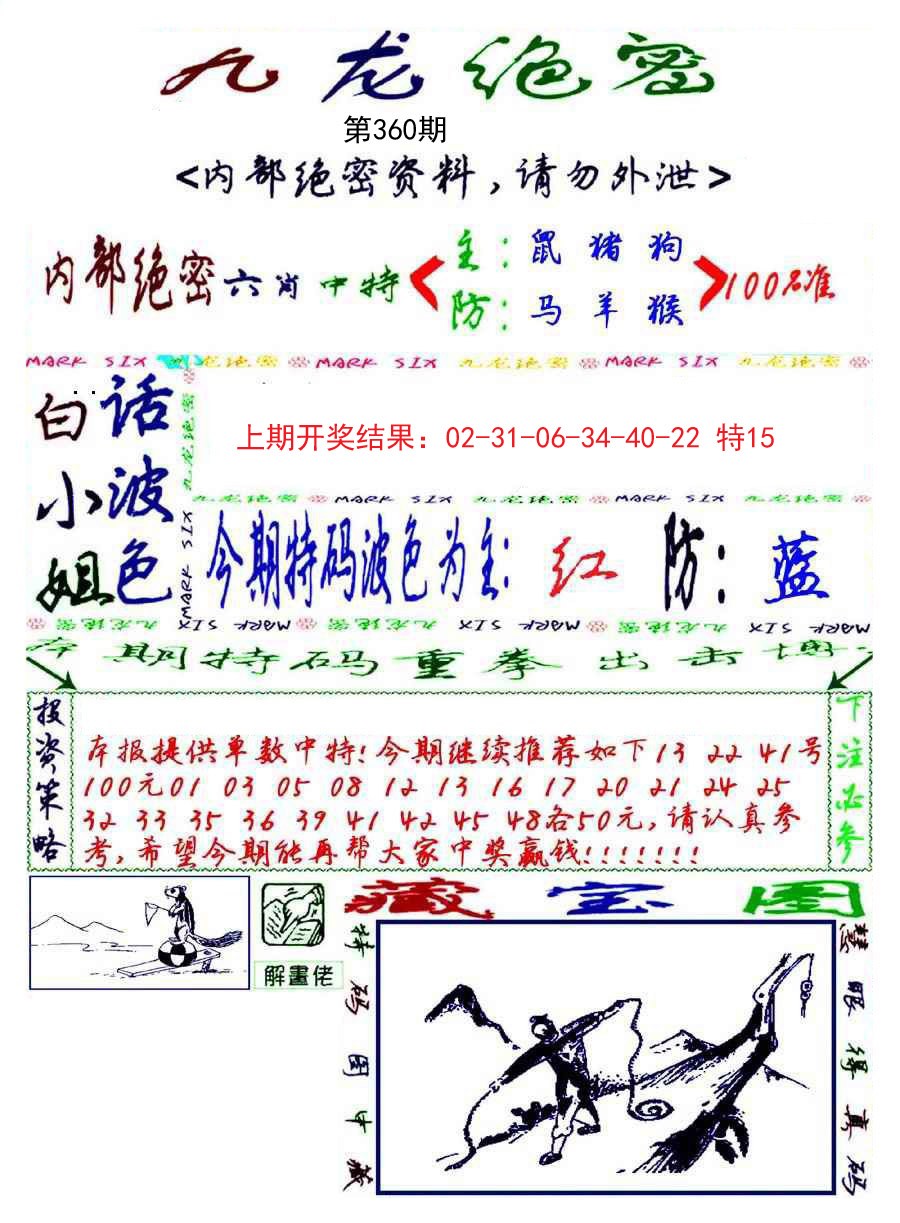 九龙绝密
第360期
<内部绝密资料,请勿外泄>
内部绝密六肖中特
主:鼠猪狗
防:马羊猴
100%准
MARK SIX 九龙绝密 MARK SIX 九龙绝密 MARK SIX 九龙绝密
白话
小波
姐色
九龙绝密 MARK SIX
上期开奖结果：02-31-06-34-40-22 特15
九龙绝密 MARK SIX 九龙绝密 MARK SIX 九龙绝密
今期特码波色为主:红 防:蓝
九龙绝密 MARK SIX 九龙绝密 MARK SIX 九龙绝密 MARK SIX
本期特码重拳出击博:
投资策略
本报提供单数中特!今期继续推荐如下13 22 41号
100元01 03 05 08 12 13 16 17 20 21 24 25
32 33 35 36 39 41 42 45 48各50元,请认真参
考,希望今期能再帮大家中奖赢钱!!!!!!!
下注必参
解畫佬
藏宝图
特码图中藏
慧眼得真码